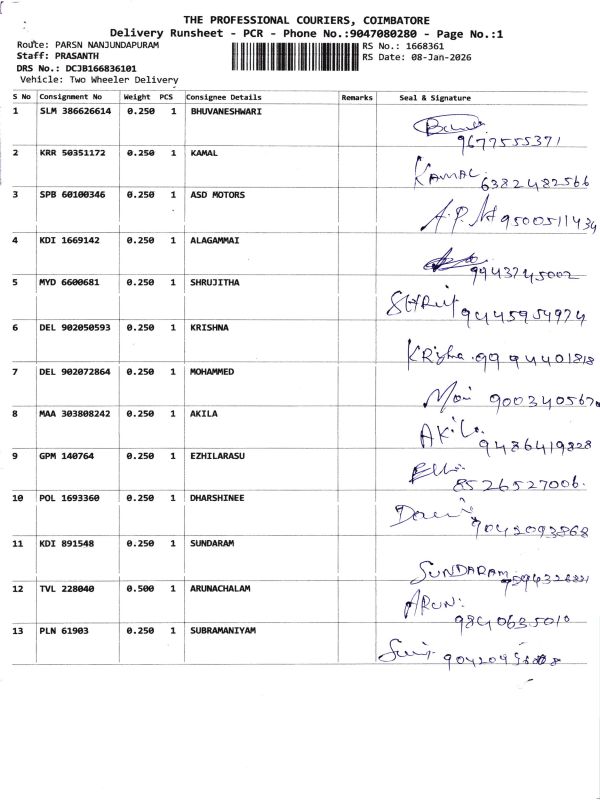 THE PROFESSIONAL COURIERS, COIMBATORE
Delivery Runsheet - PCR - Phone No.:9047080280 - Page No.:1
Route: PARSN NANJUNDAPURAM
RS No.: 1668361
Staff: PRASANTH
RS Date: 08-Jan-2026
DRS No.: DCJB166836101
Vehicle: Two Wheeler Delivery
S No Consignment No Weight PCS Consignee Details Remarks Seal & Signature
1 SLM 386626614 0.250 1 BHUVANESHWARI
9677555371
2 KRR 50351172 0.250 1 KAMAL
KAMAL 6382482566
3 SPB 60100346 0.250 1 ASD MOTORS
9500511434
4 KDI 1669142 0.250 1 ALAGAMMAI
9943745002
5 MYD 6600681 0.250 1 SHRUJITHA
9445954974
6 DEL 902050593 0.250 1 KRISHNA
9994401818
7 DEL 902072864 0.250 1 MOHAMMED
8 MAA 303808242 0.250 1 AKILA
Akila 9486419828
9 GPM 140764 0.250 1 EZHILARASU
8526527006
10 POL 1693360 0.250 1 DHARSHINEE
9042093868
11 KDI 891548 0.250 1 SUNDARAM
SUNDARAM
12 TVL 228040 0.500 1 ARUNACHALAM
ARUN: 9840635010
13 PLN 61903 0.250 1 SUBRAMANIYAM